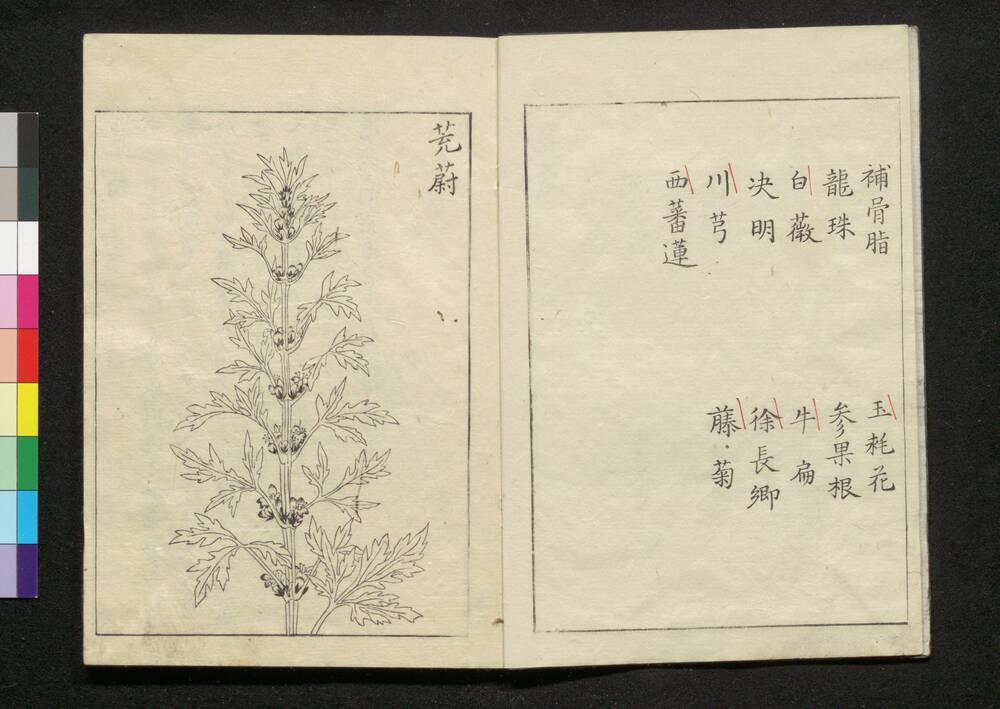 補骨脂
龍珠
白薇
决明
川芎
西蕃蓮
玉耗花
参果根
牛扁
徐長卿
藤菊
茺蔚